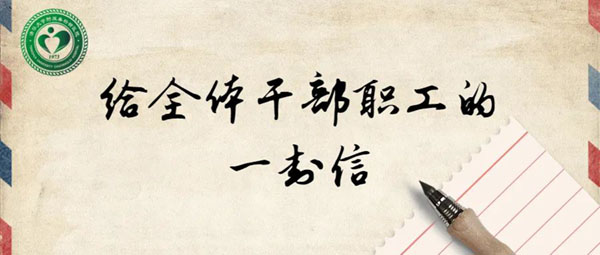 给全体干部职工的
一封信